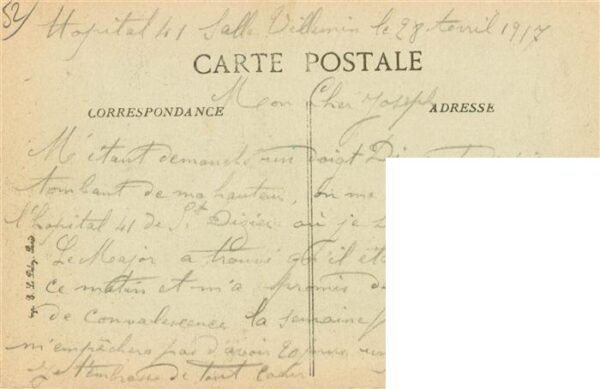 52
Hopital 41 Salle Villemin le 28 Avril 1917
CARTE POSTALE
Mon Cher Joseph
CORRESPONDANCE
ADRESSE
M'étant démanché un doigt
tombant de ma hauteur, on me
l'hopital 41 de St Dizier où je
Le Major a trouvé qu'il
ce matin et m'a promis
de convalescence la semaine
m'empêchera pas d'avoir 20 jours
Je t'embrasse de tout coeur